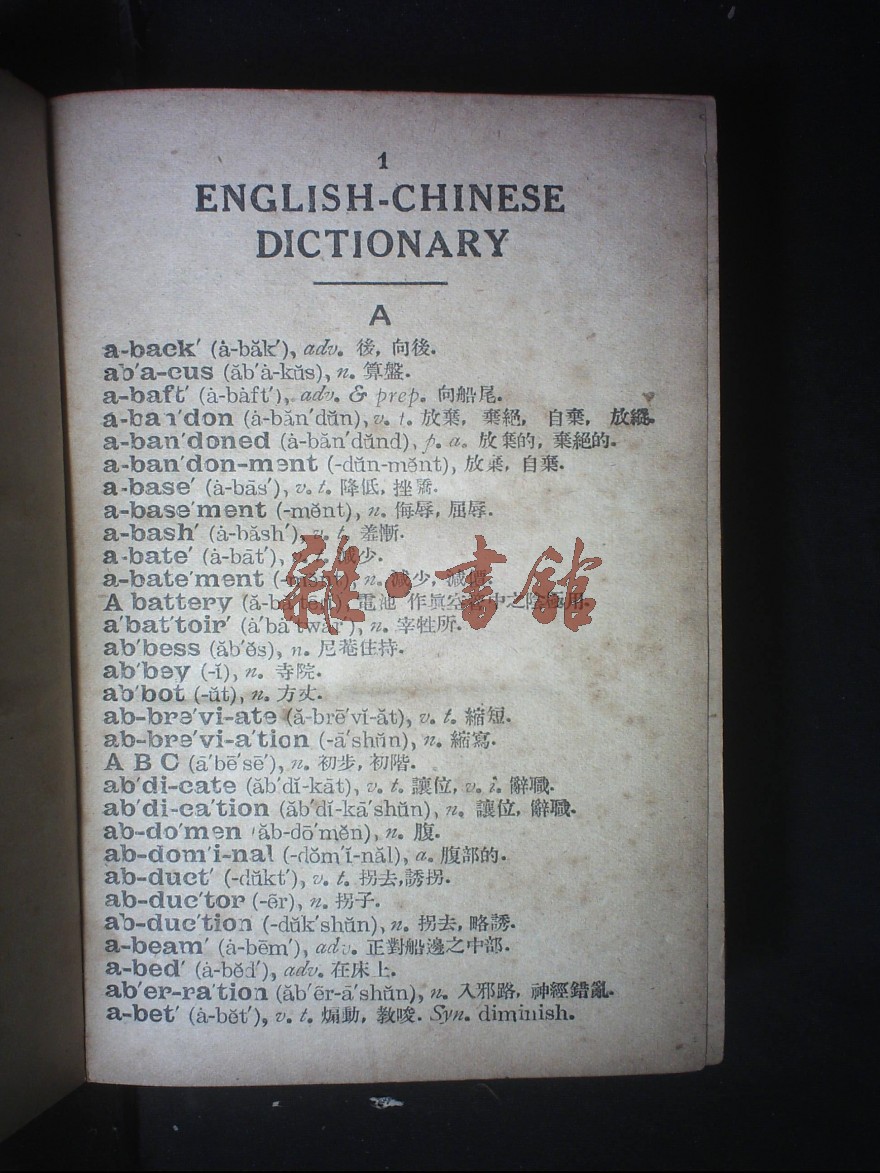 1
ENGLISH-CHINESE
DICTIONARY
A
a-back′ (ȧ-băk′), adv. 後, 向後.
ab′a-cus (ăb′ȧ-kŭs), n. 算盤.
a-baft′ (ȧ-bȧft′), adv. & prep. 向船尾.
a-ban′don (ȧ-băn′dŭn), v. t. 放棄, 棄絕, 自棄, 放縱.
a-ban′doned (ȧ-băn′dŭnd), p. a. 放棄的, 棄絕的.
a-ban′don-ment (-dŭn-mĕnt), 放棄, 自棄.
a-base′ (ȧ-bās′), v. t. 降低, 挫驕.
a-base′ment (-mĕnt), n. 侮辱, 屈辱.
a-bash′ (ȧ-băsh′), v. t. 羞慚.
a-bate′ (ȧ-bāt′), 減少.
a-bate′ment (-mĕnt), n. 減少,
A battery 電池 作眞空管中之陰極用.
a′bat′toir′ (ȧ′bȧ′twȧr′), n. 宰牲所.
ab′bess (ăb′ĕs), n. 尼菴住持.
ab′bey (-ĭ), n. 寺院.
ab′bot (-ŭt), n. 方丈.
ab-bre′vi-ate (ă-brē′vĭ-āt), v. t. 縮短.
ab-bre′vi-a′tion (-ā′shŭn), n. 縮寫.
A B C (ā′bē′sē′), n. 初步, 初階.
ab′di-cate (ăb′dĭ-kāt), v. t. 讓位, v. i. 辭職.
ab′di-ca′tion (ăb′dĭ-kā′shŭn), n. 讓位, 辭職.
ab-do′men (ăb-dō′mĕn), n. 腹.
ab-dom′i-nal (-dŏm′ĭ-năl), a. 腹部的.
ab-duct′ (-dŭkt′), v. t. 拐去,誘拐.
ab-duc′tor (-ẽr), n. 拐子.
ab-duc′tion (-dŭk′shŭn), n. 拐去, 略誘.
a-beam′ (ȧ-bēm′), adv. 正對船邊之中部.
a-bed′ (ȧ-bĕd′), adv. 在床上.
ab′er-ra′tion (ăb′ẽr-ā′shŭn), n. 入邪路, 神經錯亂.
a-bet′ (ȧ-bĕt′), v. t. 煽動, 教唆. Syn. diminish.
雜·書館